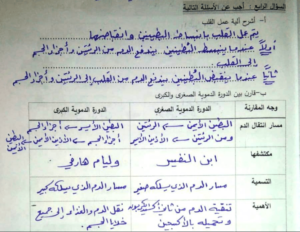 السؤال الرابع : أجب عن الأسئلة التالية
أ- اشرح آلية عمل القلب
يتم عمل القلب بانبساط البطينين وانقباضهما
أولاً عندما ينبسط البطينين يندفع الدم من الرئتين وأجزاء الجسم
إلى القلب
ثانياً عندما ينقبض البطينين يندفع الدم من القلب إلى الرئتين وأجزاء الجسم
ب- قارن بين الدورة الدموية الصغرى والكبرى
وجه المقارنة الدورة الدموية الصغرى الدورة الدموية الكبرى
مسار انتقال الدم البطين الأيمن الرئتين البطين الأيسر أجزاء الجسم
ومن الرئتين الأذين الأيسر الأذين الأيمن
مكتشفها ابن النفيس وليام هارفي
التسمية مسار الدم الذي يسلكه صغير مسار الدم الذي يسلكه كبير
الأهمية تنقية الدم من ثاني أكسيد الكربون نقل الدم والغذاء إلى جميع
وتحميله بالأكسجين خلايا الجسم